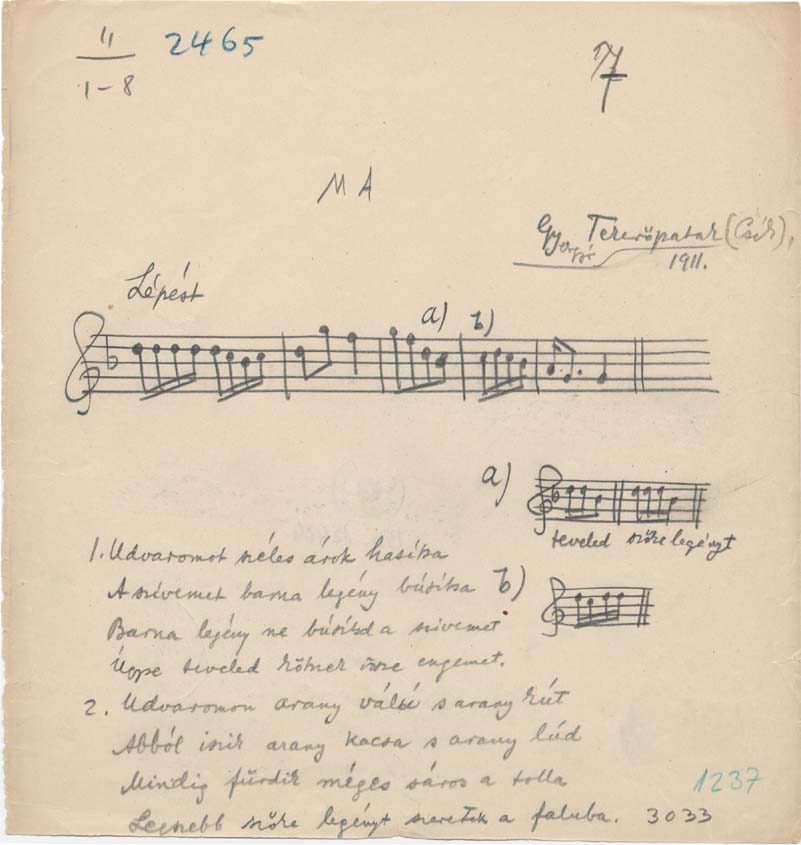 11
1-8
2465
M A
Gyergyó Tekerőpatak (Csík),
1911.
Lépést
a) b)
a)
teveled szőke legényt
1. Udvaromot széles árok hasítsa
A szivemet barna legény búsítsa b)
Barna legény ne búsítsd a szivemet
Úgyse teveled kötnek össze engemet.
2. Udvaromon arany vályú s arany kút
Abból iszik arany kacsa s arany lúd
Mindig fürdik méges sáros a tolla
Legszebb szőke legényt szeretek a faluba. 3033
1237